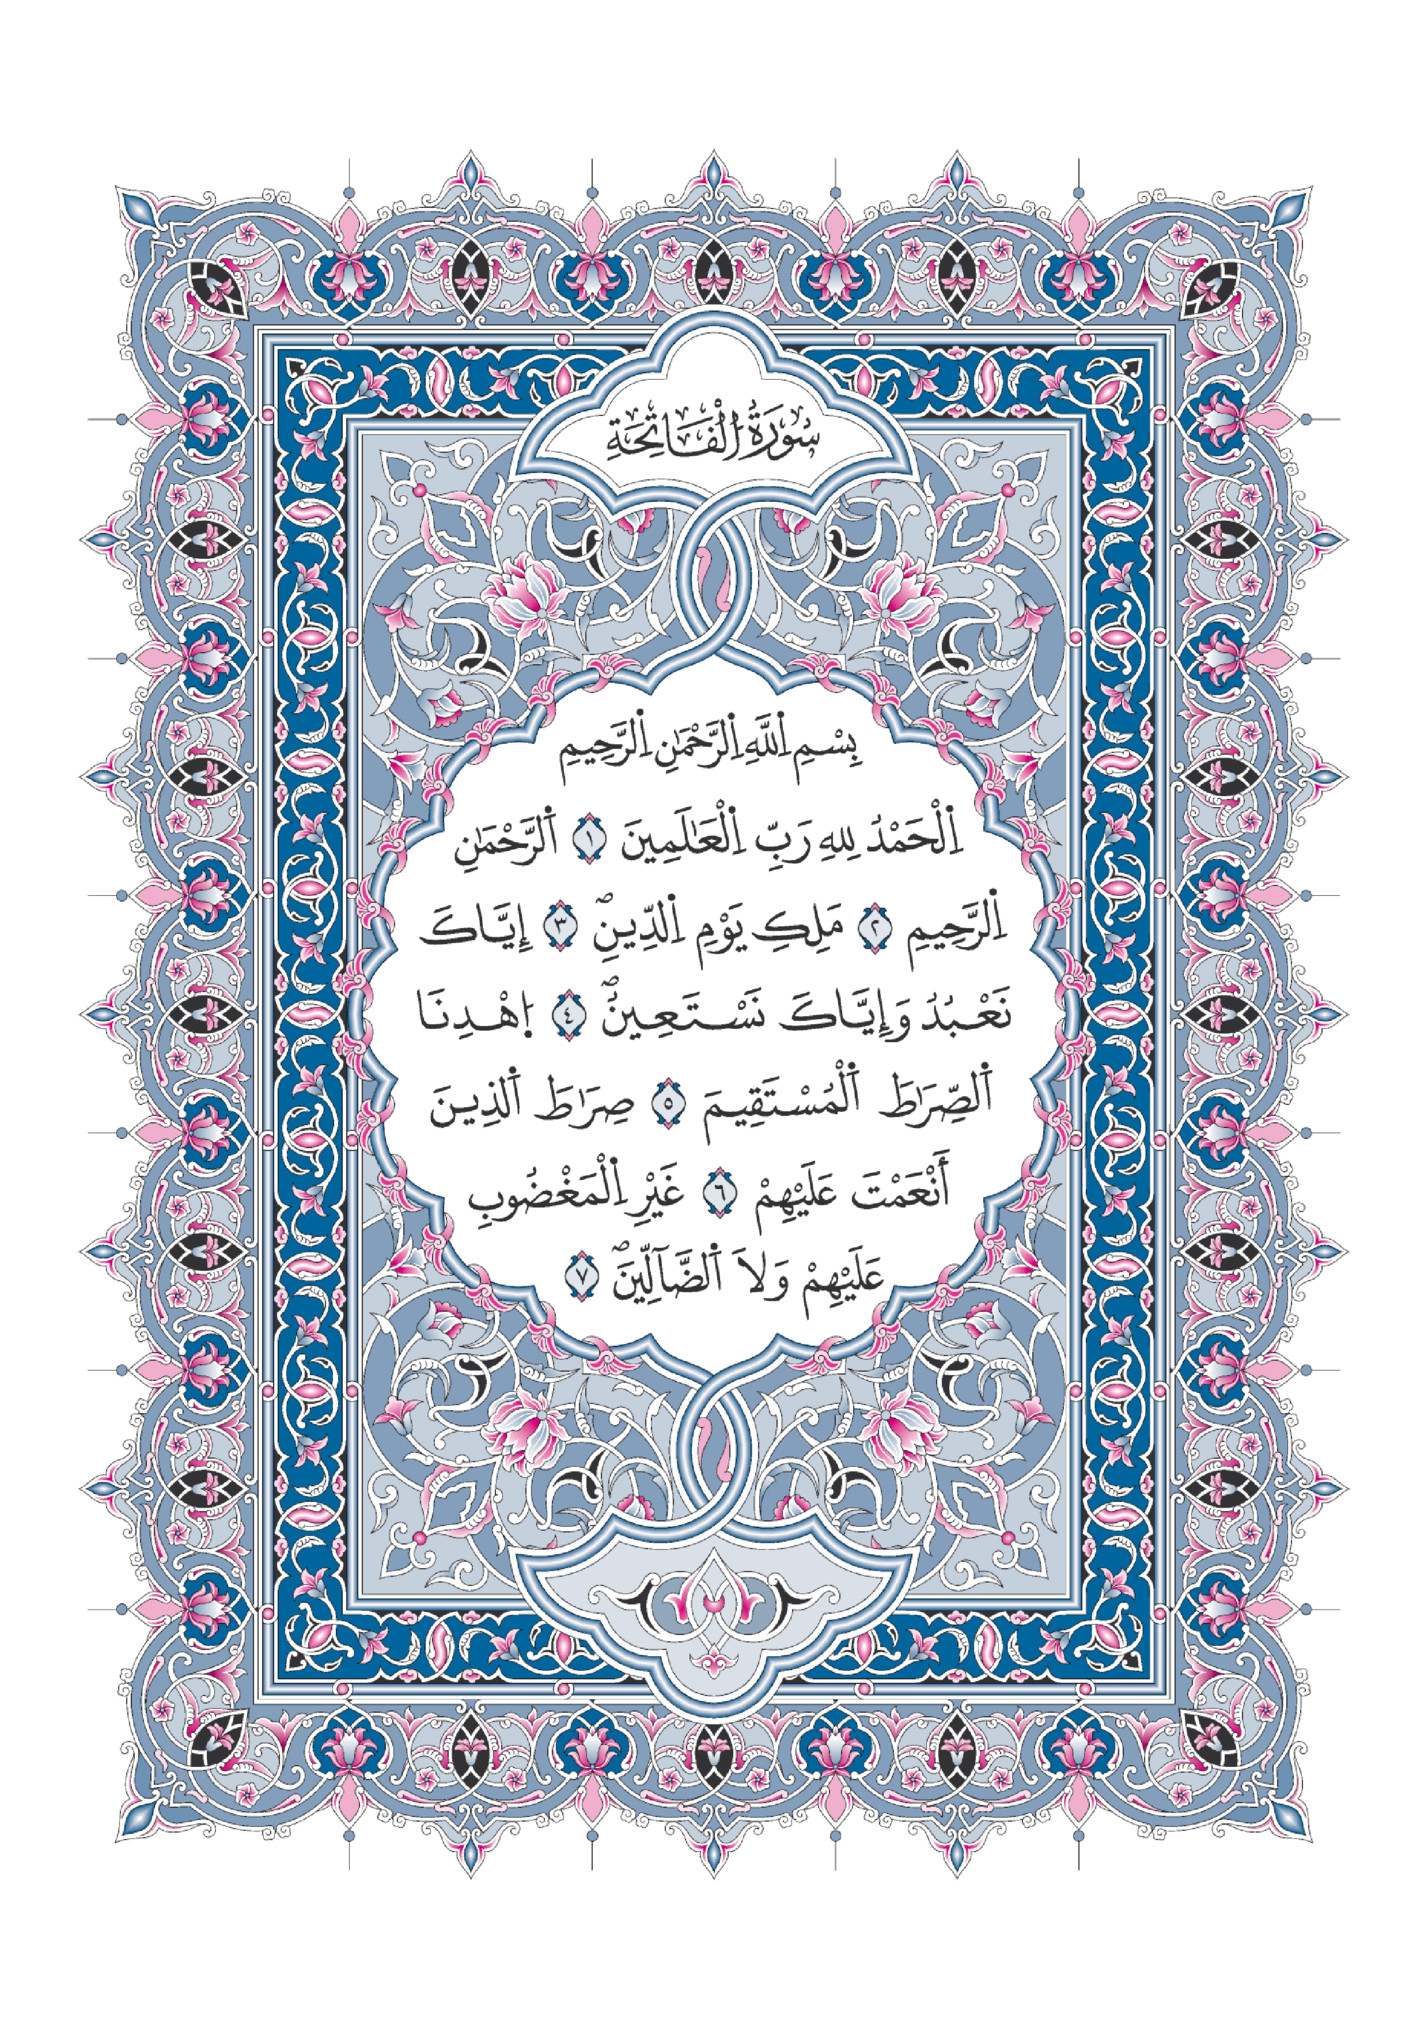 سُورَةُ الْفَاتِحَةِ
بِسْمِ اِللَّهِ اِلرَّحْمَٰنِ اِلرَّحِيمِ
اِلْحَمْدُ لِلهِ رَبِّ اِلْعَٰلَمِينَ ١ اَلرَّحْمَٰنِ
اِلرَّحِيمِ ٢ مَلِكِ يَوْمِ اِلدِّينِۖ ٣ إِيَّاكَ
نَعْبُدُ وَإِيَّاكَ نَسْتَعِينُۖ ٤ اِهْدِنَا
اَلصِّرَٰطَ اَلْمُسْتَقِيمَ ٥ صِرَٰطَ اَلذِينَ
أَنْعَمْتَ عَلَيْهِمْ ٦ غَيْرِ اِلْمَغْضُوبِ
عَلَيْهِمْ وَلاَ اَلضَّآلِّينَۖ ٧